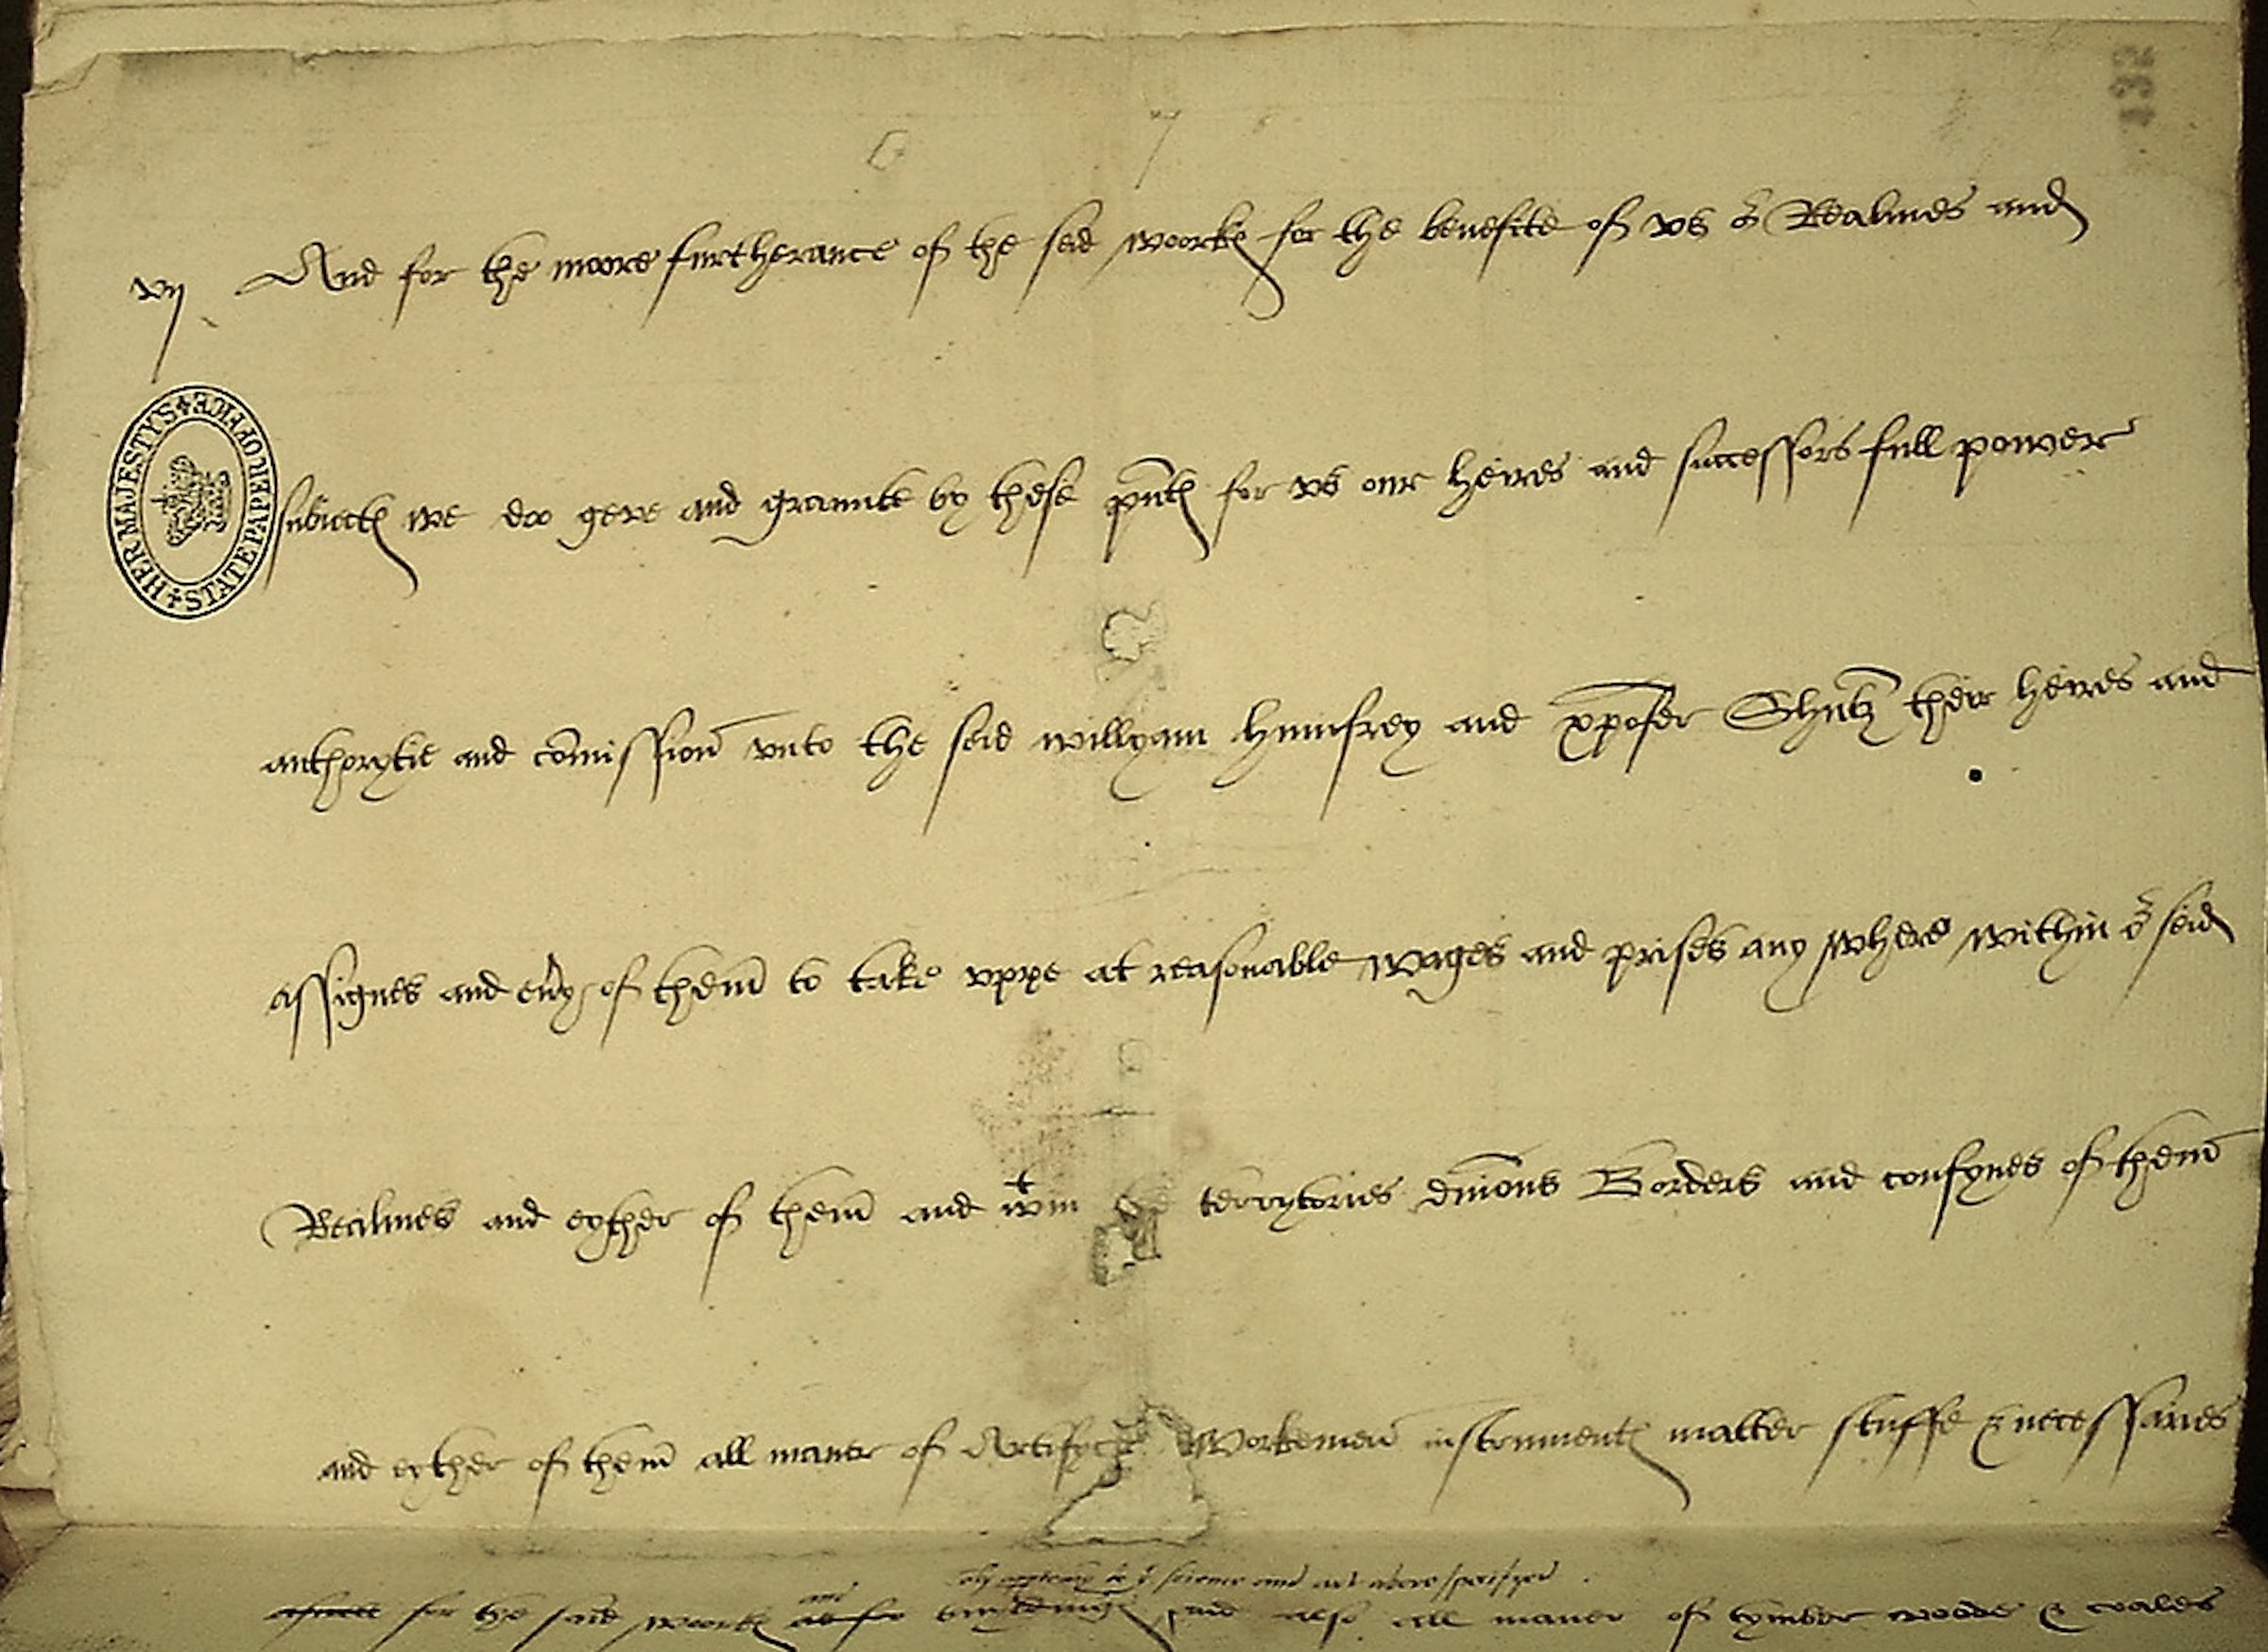 132
vij And for the moore furtherance of the seid woorkes for the benefite of vs or Realmes and
HER MAJESTYS STATE PAPER OFFICE
subiectes we doo geve and graunte by these pntes for vs our heires and successors full power
authorytie and comission vnto the seid willyam humfrey and xpofer Shutz their heires and
assignes and eury of them to take vppe at reasonable wages and prises any where within or seid
Realmes and eyther of them and wtin the terrytories dnions Borders and confynes of them
and eyther of them all maner of Artifycers Workemen instrumentes matter stuffe & necessaries
only science and art above specifyed
and
for the said workes as for buyldinges and also all maner of tymber woode & coales